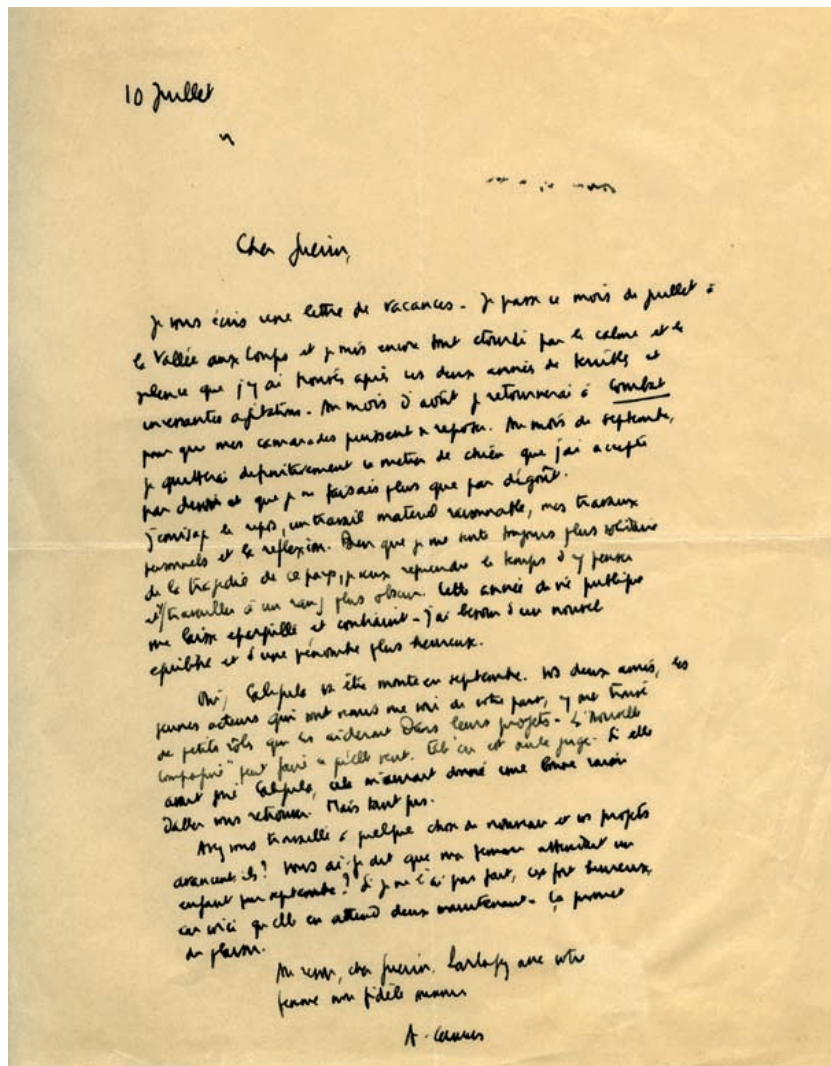 10 Juillet
Cher Guérin,
Je vous écris une lettre de vacances - Je passe ce mois de juillet à
la Vallée aux Loups et je suis encore tout étourdi par le calme et le
silence que j'y ai trouvés après ces deux années de terribles et
incessantes agitations. Au mois d'août je retournerai à Combat
pour que mes camarades puissent se reposer. Au mois de septembre,
je quitterai définitivement ce métier de chien que j'ai accepté
par et que je ne faisais plus que par dégoût.
J'envisage le repos, un travail matériel raisonnable, mes travaux
personnels et la réflexion. Bien que je me sente toujours plus solidaire
de la tragédie de ce pays, je veux reprendre le temps d'y penser
et d'y travailler à un rang plus obscur. Cette année de vie publique
me laisse éparpillé et contraint - j'ai besoin d'un nouvel
équilibre et d'une pénombre plus heureuse.
Oui, Caligula va être monté en septembre. Vos deux amis, les
jeunes acteurs qui sont venus me voir de votre part, y ont trouvé
de petits rôles qui les aideront dans leurs projets - La "Nouvelle
Compagnie" peut faire ce qu'elle veut. Elle en est seule juge. Si elle
avait joué Caligula, cela m'aurait donné une bonne raison
d'aller vous retrouver. Mais tant pis.
Avez vous travaillé à quelque chose de nouveau et vos projets
avancent-ils? Vous ai-je dit que ma femme attendait un
enfant pour septembre? Si je ne l'ai pas fait, c'est fort heureux,
car voici qu'elle en attend deux maintenant - Ça promet
du plaisir.
Au revoir, cher Guérin. Partagez avec votre
femme mon fidèle souvenir
A. Camus